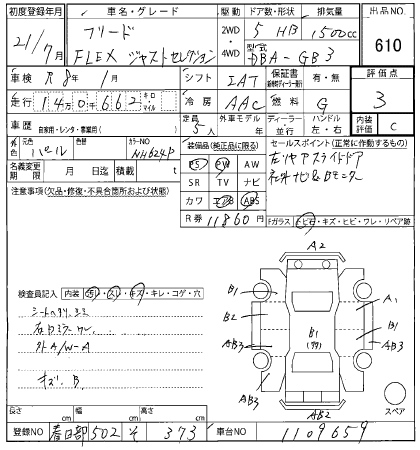 初度登録年月 車名・グレード 駆動 ドア数・形状 排気量 出品NO
21/7月 フリード 2WD 5 HB 1500cc
FLEX ジャストセレクション 4WD 型式 DBA-GB3 610
車検 R8年/月 シフト IAT 保証書 有・無 評価点
走行 14万0千662 キロ マイル 冷房 AAC 燃料 G 3
車歴 自家用・レンタ・事業用( ) 定員 5人 外車モデル 年 ディーラー 並行 ハンドル 左・右 内装評価 C
外色 元色 パール 色替 カラーNO NH624P 装備品(純正品に限る) セールスポイント(正常に作動するもの)
名義変更期限 月 日迄 積載量 t PS PW AW 左リヤスライドドア
注意事項(欠品・修復・不具合箇所および状態) SR TV ナビ 社外ナビ&Bモニター
カワ エアB ABS
R券 11860円 Fガラス トビ石・キズ・ヒビ・ワレ・リペア跡
A2
検査員記入 内装 ヨゴレ・スレ・キズ・キレ・コゲ・穴
B1 A1
シートヘタリ、シミ B2 B1
右ドアミラーワレ B1
外A/W-A AB3 AB3
キズ、B
AB3 AB3
AB2 スペア
長さ cm 幅 cm 高さ cm
登録NO 春日部 502 そ 373 車台NO 1109659